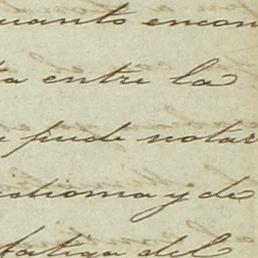 uanto encon
ta entre la
e pude notar
idioma y de
fatiga del